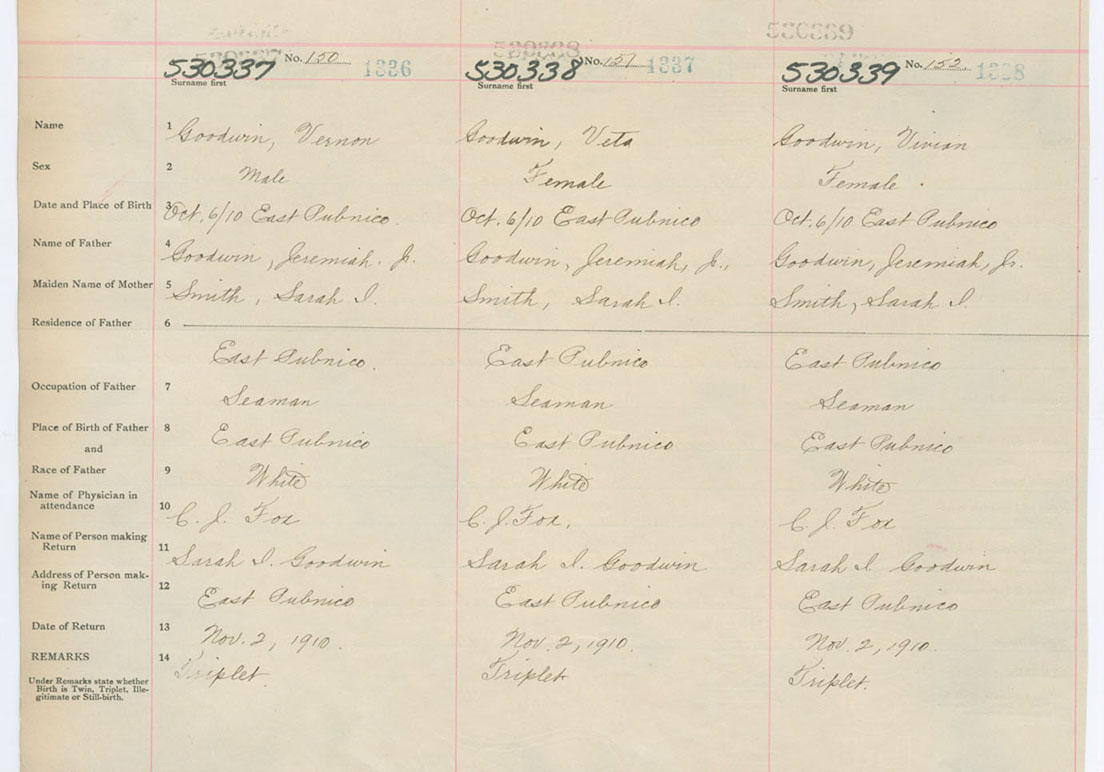 530339
530338
530337 No. 150 1336 530338 No. 151 1337 530339 No. 152 1338
Surname first Surname first Surname first
Name 1 Goodwin, Vernon Goodwin, Veta Goodwin, Vivian
Sex 2 Male Female Female
Date and Place of Birth 3 Oct. 6/10 East Pubnico Oct. 6/10 East Pubnico Oct. 6/10 East Pubnico
Name of Father 4 Goodwin, Jeremiah. Jr. Goodwin, Jeremiah, Jr., Goodwin, Jeremiah, Jr.
Maiden Name of Mother 5 Smith, Sarah I. Smith, Sarah I. Smith, Sarah I.
Residence of Father 6
East Pubnico. East Pubnico East Pubnico
Occupation of Father 7 Seaman Seaman Seaman
Place of Birth of Father 8 East Pubnico East Pubnico East Pubnico
and
Race of Father 9 White White White
Name of Physician in
attendance 10 C. J. Fox C. J. Fox, C. J. Fox
Name of Person making
Return 11 Sarah I. Goodwin Sarah I. Goodwin Sarah I Goodwin
Address of Person mak-
ing Return 12 East Pubnico East Pubnico East Pubnico
Date of Return 13 Nov. 2, 1910. Nov. 2, 1910. Nov. 2, 1910.
REMARKS 14 Triplet. Triplet Triplet.
Under Remarks state whether
Birth is Twin, Triplet, Ille-
gitimate or Still-birth.